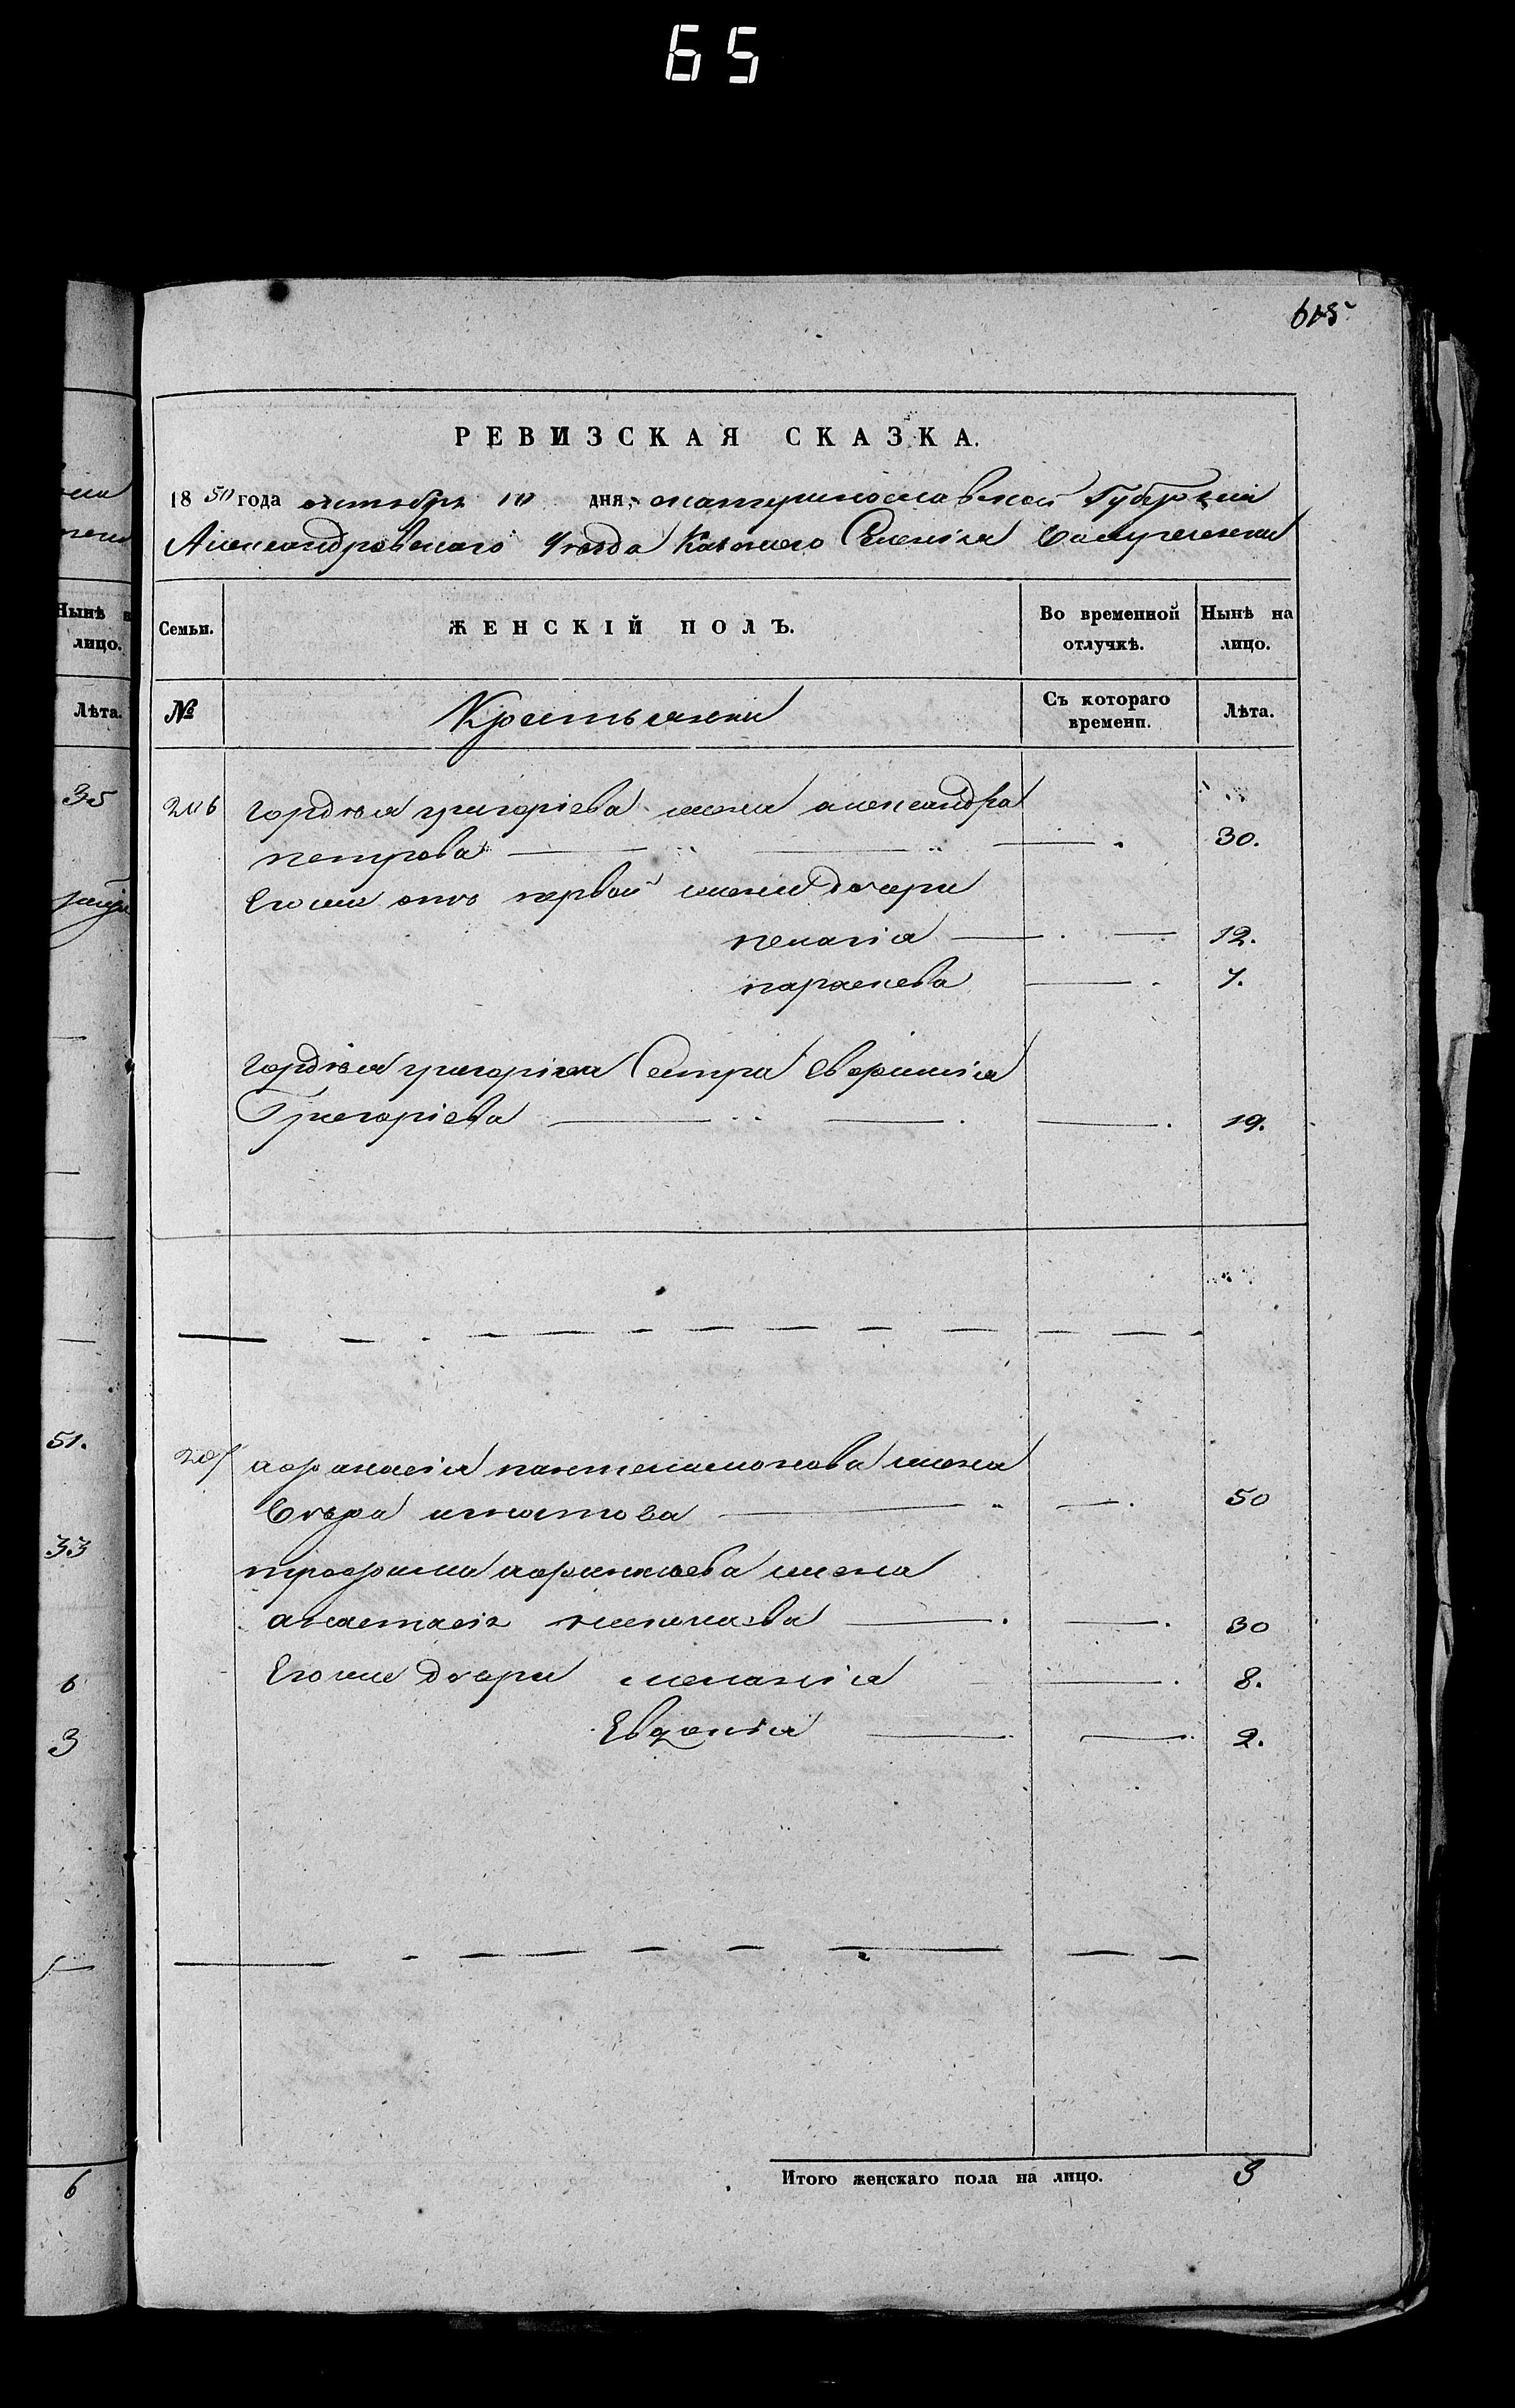 65
615
РЕВИЗСКАЯ СКАЗКА.
1850 года октября 10 дня, екатеринославской Губерніи
Александровскаго Уезда Казенаго Селенія
Семьи. ЖЕНСКІЙ ПОЛЪ. Во временной отлучкѣ. Нынѣ на лицо.
№ Крестьянки Съ котораго времени. Лѣта.
206 гордѣя григоріева жена александра
петрова 30.
Егоже отъ первой жены дочери
пелагія 12.
параскева 7.
гордѣя григоріева Сестра Евфимія
Григоріева 19.
207 афанасія пантелимонова жена
Вѣра игнатова 50
трофима афанасьева жена
анастасія николаева 30
Егоже дочери меланія 8.
Евгенія 2.
Итого женскаго пола на лицо.
Нынѣ
лицо.
Лѣта.
35
51.
33
6
3
6